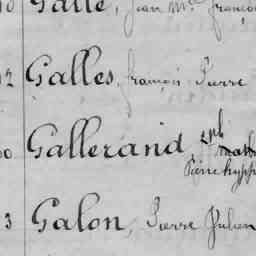 Galle, Jean M
Galles, françois Pierre
Gallerand
Pierre hypp
3 Galon, Pierre Julien